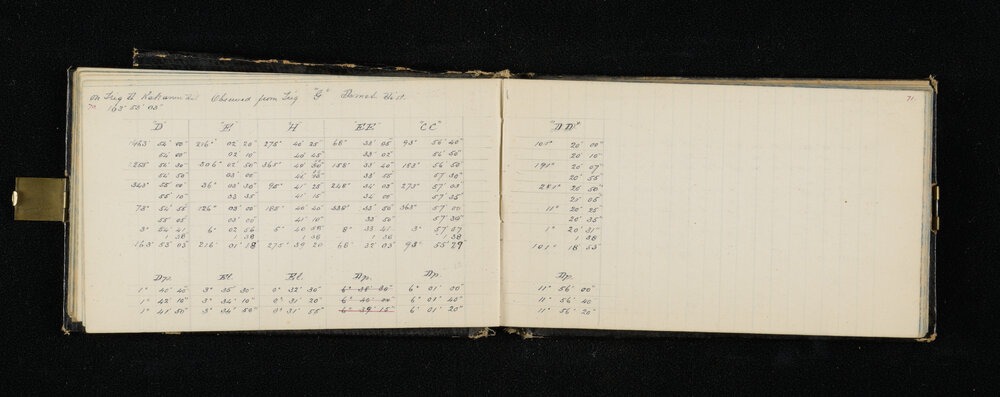 On Trig B Observed from Trig "G" Dist.
70. 163° 53' 03" 71.
"D" "E" "H" "EE" "CC" "DD"
163° 54' 00" 216° 02 20" 275° 40' 25" 68° 33 05" 93° 56' 40" 101° 20' 00"
54 00" 02 10" 40' 45" 33 02" 56' 50" 20' 10"
54' 30" 306° 02' 50" 365° 40' 50" 158° 33' 40" 183° 56' 50" 191° 20' 07"
54' 50" 03' 00" 33' 55" 57' 30" 20' 55"
343° 55' 00" 36° 03' 30" 95° 41' 25" 248° 34' 03" 273° 57' 03" 281° 20' 50"
55' 10" 03' 35" 41' 15" 34' 00" 57' 35" 20' 05"
73° 54' 50" 126° 03' 00" 185° 40' 40" 338° 33' 50" 363° 57' 00" 11° 20' 25"
55' 05" 03' 00" 41' 10" 33' 50" 57' 30" 20' 35"
3° 54' 41 6° 02' 56 5° 40' 58" 8° 33' 41" 3° 57' 57 1° 20' 31"
1 38 1 38 1 38 1 38 1 38 1 38
163° 53' 03 216° 01' 18" 275° 39' 20 68° 32' 03" 93° 55' 29" 101° 18' 53"
Dp. El. El. Dp. Dp. Dp.
1° 40' 40 3° 35' 30" 0° 32' 30" 6° 38' 30" 6° 01' 00" 11° 56' 00"
1° 42' 10" 3° 34' 10" 0° 31' 20" 6° 40' 00" 6° 01' 40" 11° 56' 40
1° 41' 50" 3° 34' 50" 0° 31' 55" 6° 39' 15" 6° 01' 20" 11° 56' 20"